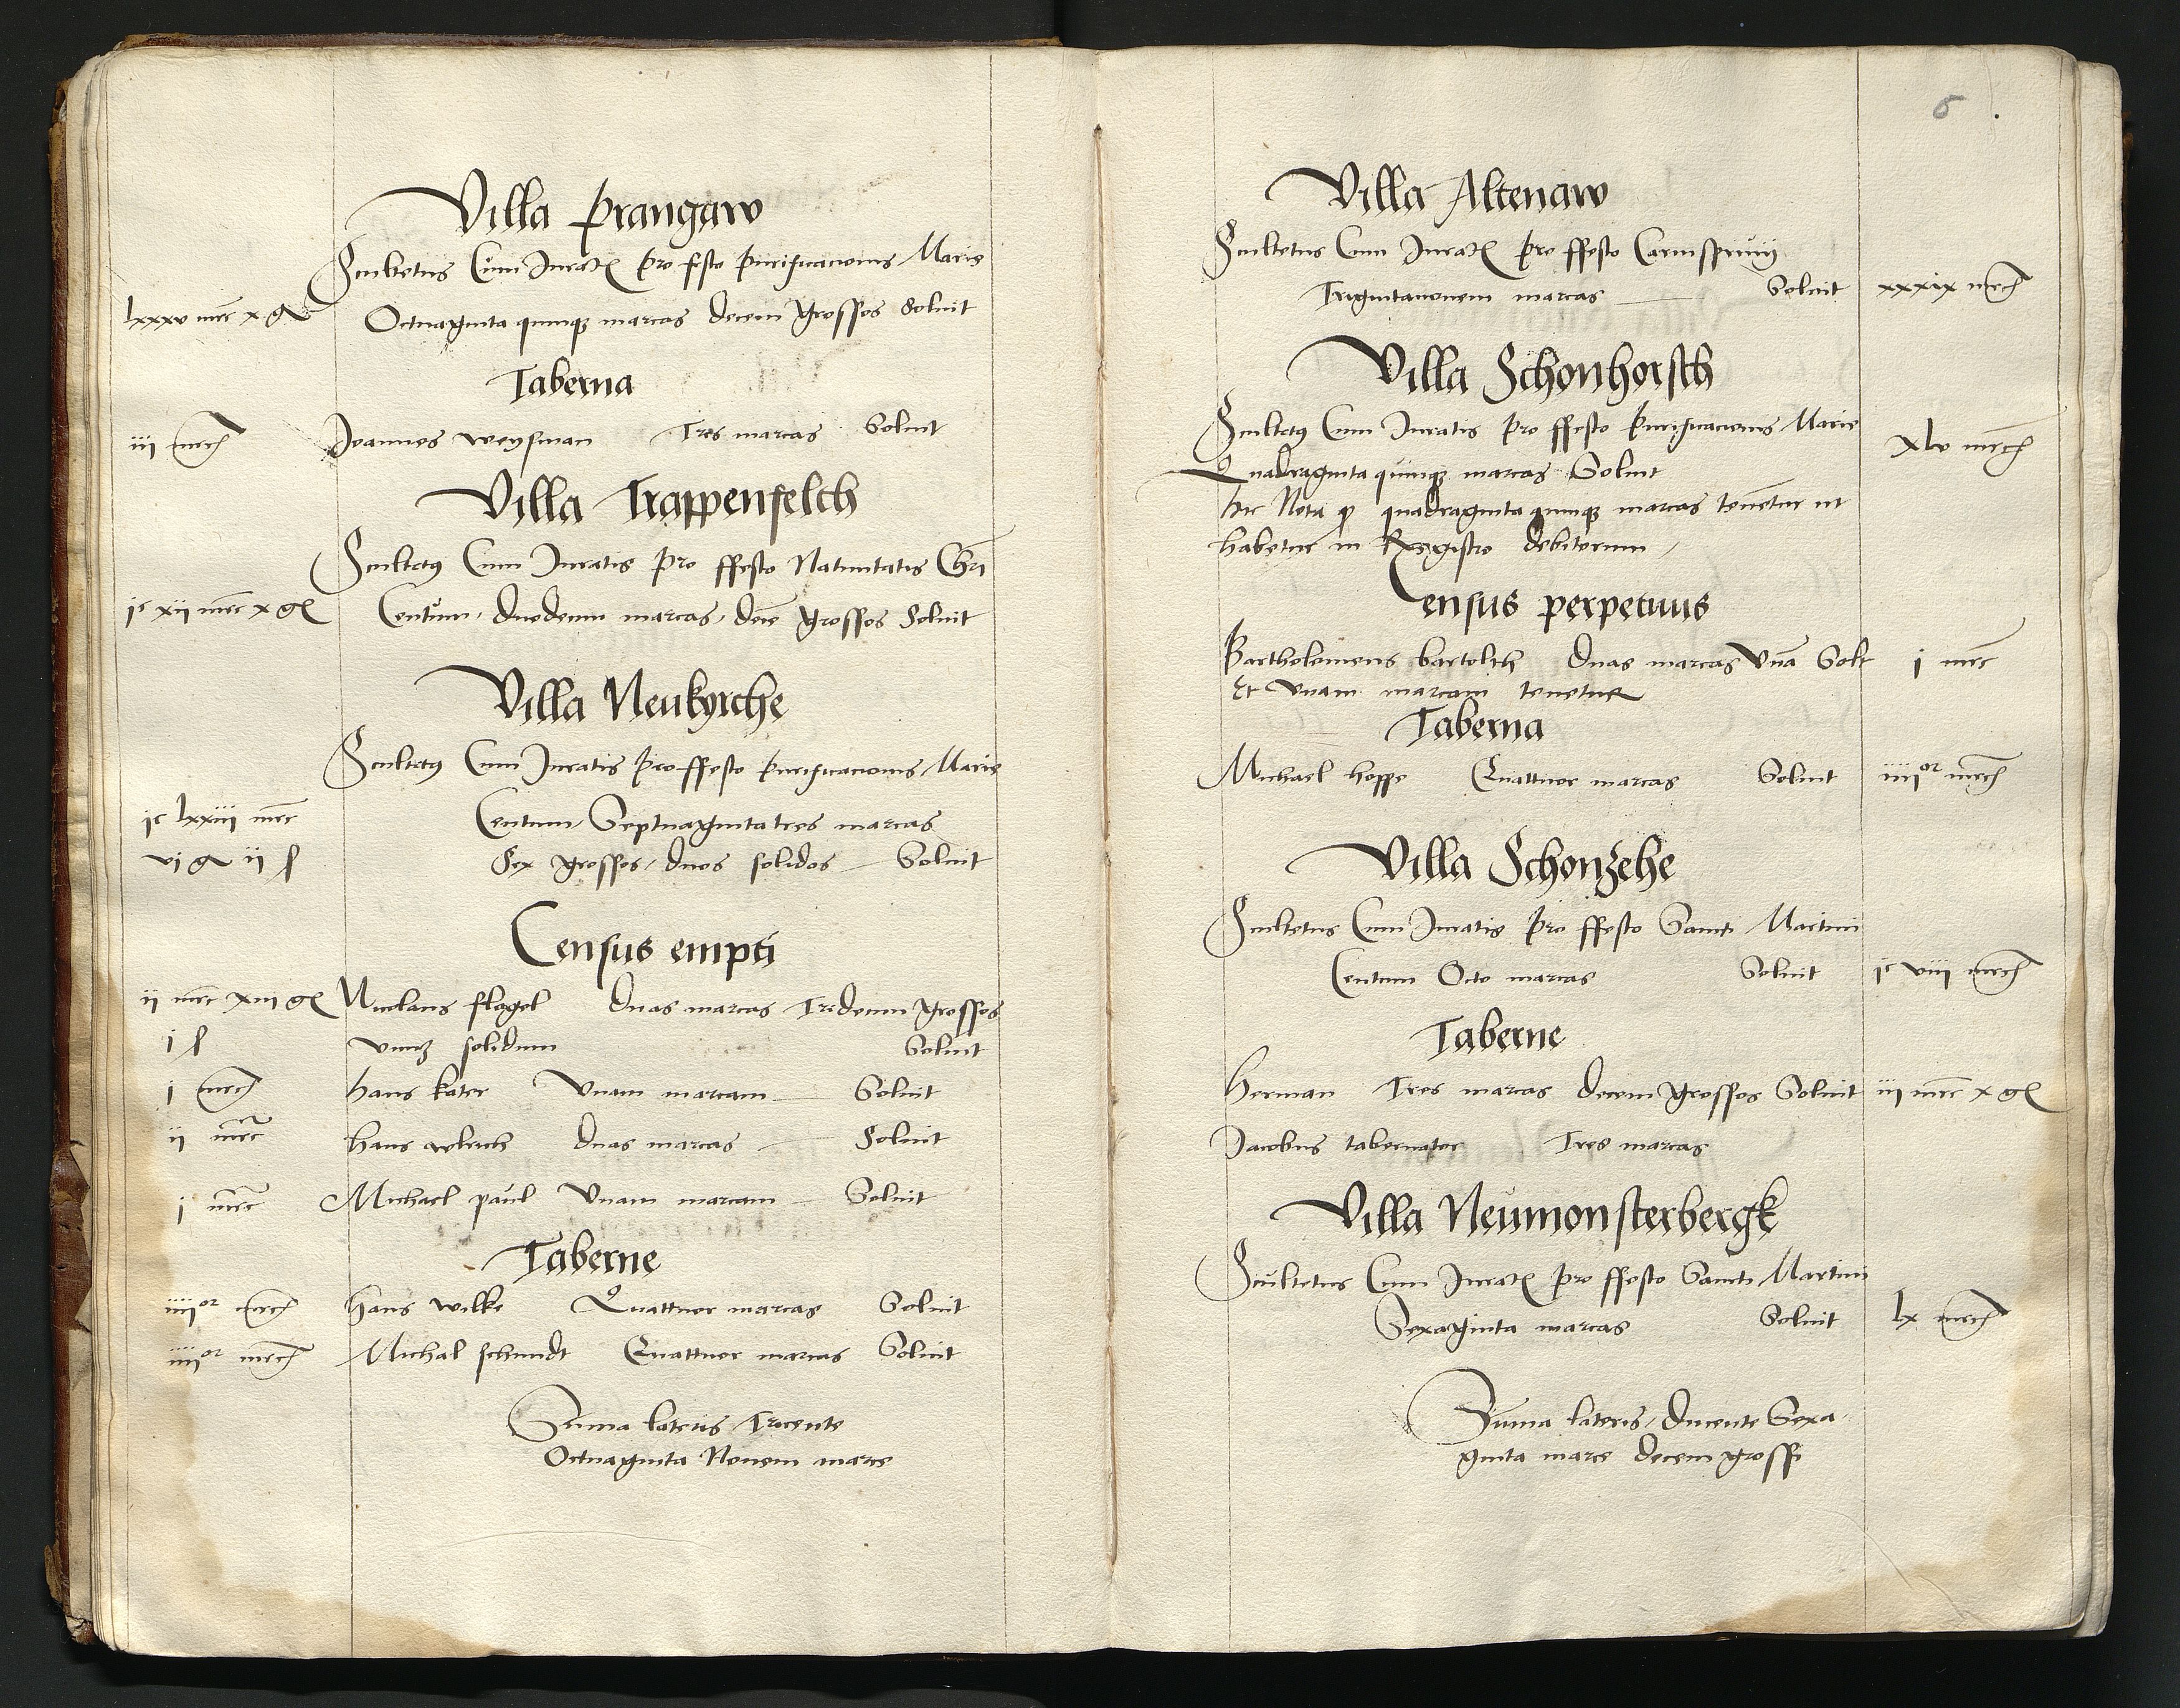 Villa Prangaw
Scultetus Cum Jurat Pro festo Purificacionis Marie
lxxxv mrc x g Octuaginta quinq marcas decem grossos Soluit
Taberna
iii mrc Joannes weysman Tres marcas Soluit
Villa Trappenfelth
Scultetus Cum Juratis pro ffesto Natiuitatis Chri
jc xii mrc x g Centum duodecim marcas dece grossos Soluit
Villa Neukyrche
Scultetus Cum Juratis Pro ffesto Purificacionis Marie
jc lxxiii mrc Centum Septuaginta tres marcas
vj g ii s Sex grossos duos solidos Soluit
Census empti
ii mrc xiii g Nicolaus flegel duas marcas Tredecim grossos
i s vnu solidum Soluit
i mrc hans kater Vnam marcam Soluit
ii mrc hans duas marcas Soluit
i mrc Michael paul Vnam marcam Soluit
Taberne
iiiior mrc hans wilke Quattuor marcas Soluit
iiiior mrc Michal schmidt Quattuor marcas Soluit
Suma lateris Trecente
Octuaginta Nouem marce
6
Villa Altenaw
Scultetus Cum Jurat Pro ffesto Carnispriuij
Trigintanouem marcas Soluit xxxix mrc
Villa Schonhorsth
Scultetus Cum Juratis Pro ffesto Purificacionis Marie
Quadraginta quinq marcas Soluit xlv mrc
hic Nota quadraginta quinq marcas tenetur ut
habetur in Registro debitorum
Census perpetuus
Bartholomeus bartolth duas marcas Vna Solt i mrc
Et vnam marcam tenetur
Taberna
Michael hoppe Quattuor marcas Soluit iiiior mrc
Villa Schonzehe
Scultetus Cum Juratis Pro ffesto Sancti Martini
Centum Octo marcas Soluit jc viii mrc
Taberne
Herman Tres marcas decem grossos Soluit iii mrc x g
Jacobus tabernator Tres marcas
Villa Neumonsterbergk
Scultetus Cum Jurat Pro ffesto Sancti Martini
Sexaginta marcas Soluit lx mrc
Suma lateris ducente Sexa-
ginta marce decem grossi